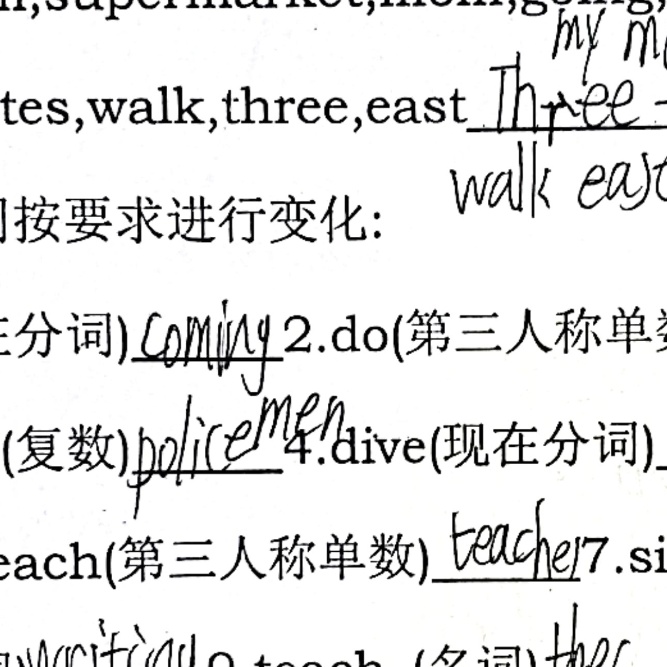 supermarket,mom,going,
my
tes,walk,three,east Three
walk east
按要求进行变化:
分词)coming 2.do(第三人称单
(复数)policemen 4.dive(现在分词)
each(第三人称单数)teacher 7.si
writing 9.teach (名词)